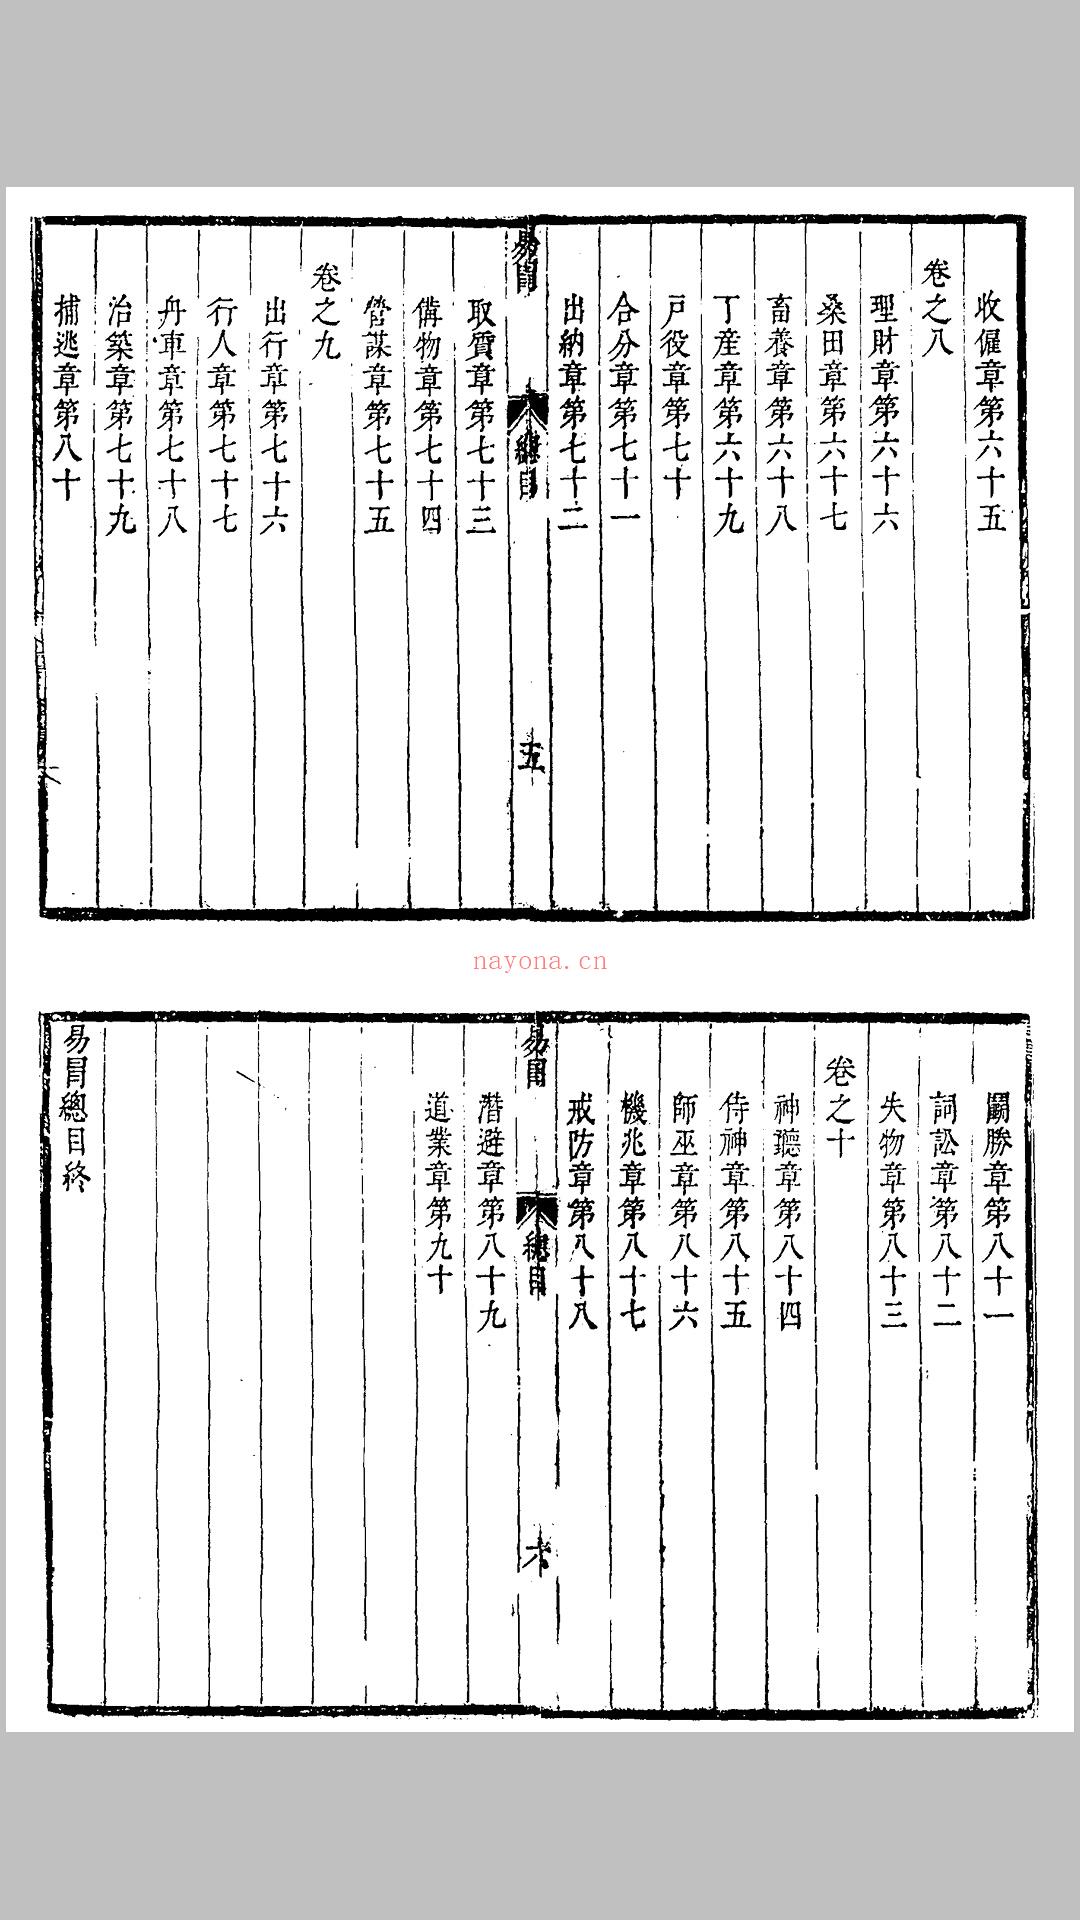 收僱章第六十五
卷之八
理財章第六十六
桑田章第六十七
畜養章第六十八
丁產章第六十九
戶役章第七十
合分章第七十一
出納章第七十二
易冐
總目
五
取質章第七十三
備物章第七十四
營謀章第七十五
卷之九
出行章第七十六
行人章第七十七
舟車章第七十八
治築章第七十九
捕逃章第八十
nayona.cn
鬭勝章第八十一
詞訟章第八十二
失物章第八十三
卷之十
神聽章第八十四
侍神章第八十五
師巫章第八十六
機兆章第八十七
戒防章第八十八
易冐
總目
六
潛避章第八十九
道業章第九十
易冐總目終